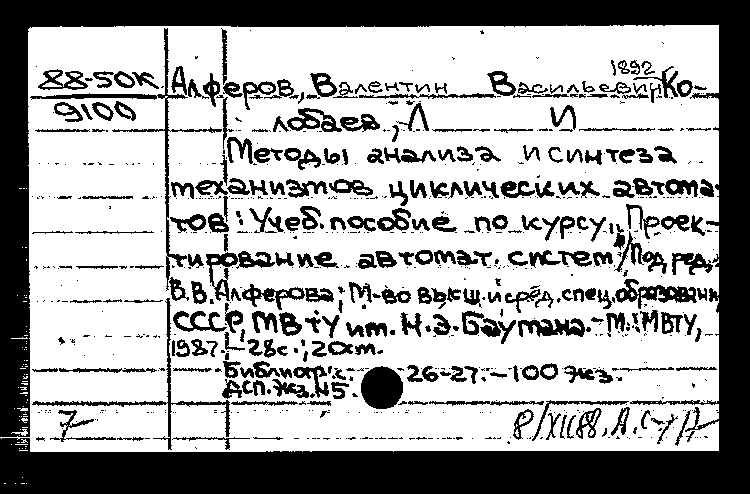 88-50К Алферов, Валентин Васильевич 1892 Ко-
9100 лобаев, Л И
Методы анализа и синтеза
механизмов циклических автома-
тов: Учеб. пособие по курсу "Проек-
тирование автомат. систем"/Под ред.
В.В.Алферова; М-во высш. и сред. спец. образования
СССР, МВТУ им. Н.Э.Баумана. - М.: МВТУ,
1987. - 28с.; 20см.
Библиогр.: с. 26-27. - 100 экз.
ДСП. Экз. N5.
7-
8/XII88.